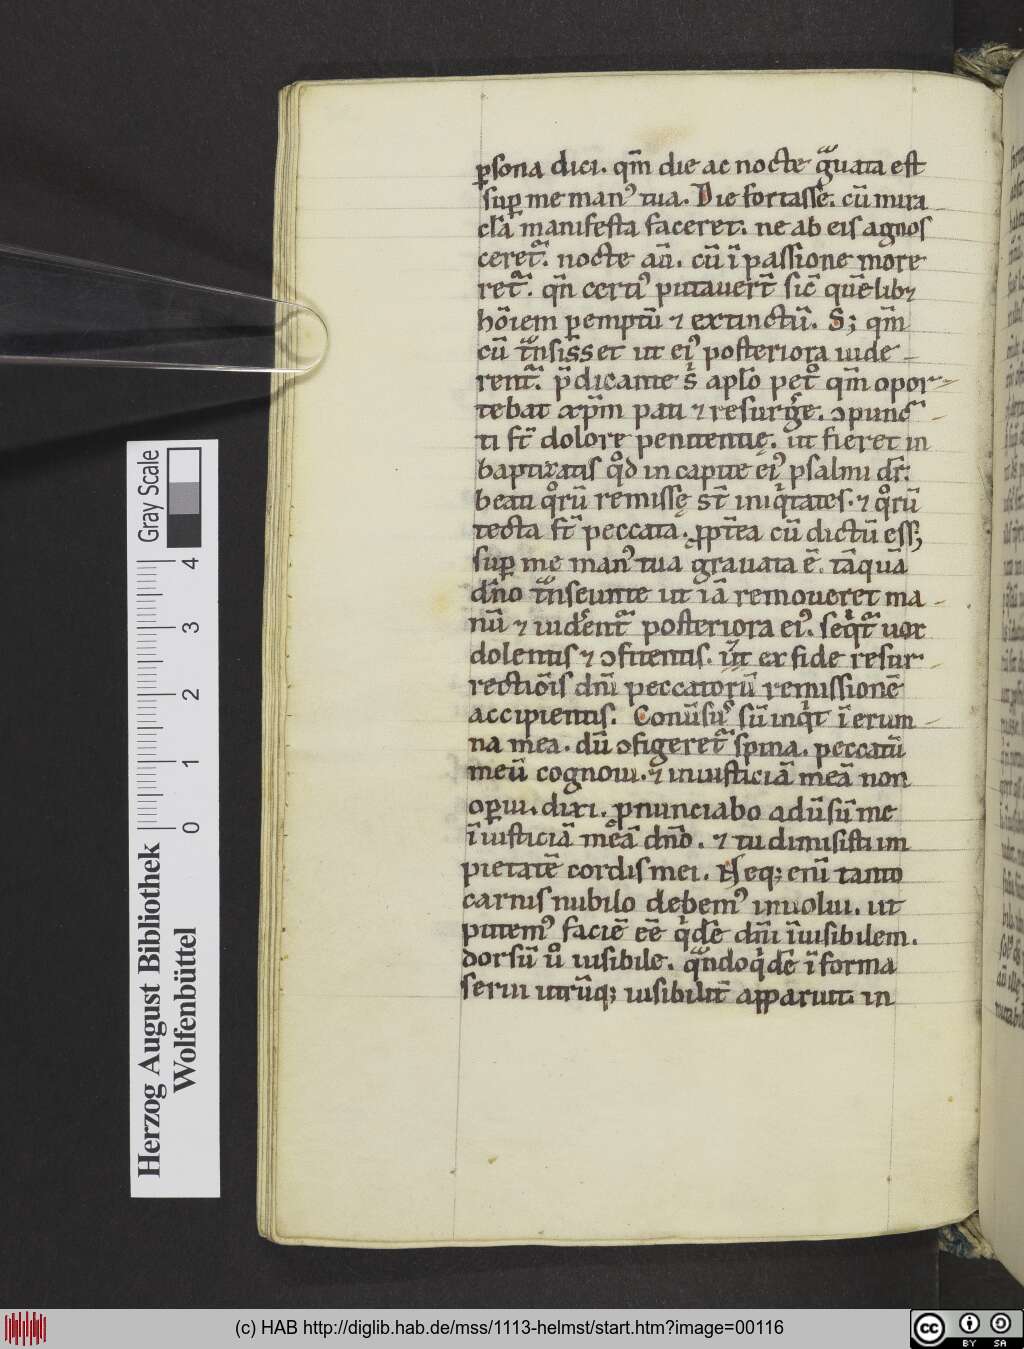 p̲sona dici. qm̄ die ac nocte gᵃuata est
sup̲ me man᾽ tua. Die fortasse. cū mira
cl̄a manifesta faceret. ne ab eis agnos
ceretᷓ. nocte aū. cū ī passione more
retᷓ. qn̄ certi᾽ putauert̄ sic̄ quēlibꝫ
hōiem p̲emptū ⁊ extinctū. Sꝫ qm̄
cū tᷓnsisset ut ei᾽ posteriora uide
rentᷓ. p̄dicante s̄ apl̄o pet͛º qm̄ opor-
tebat xp̄m pati ⁊ resurg̾e. ↄpunc
ti st̄ dolore penitentię. ut fieret in
baptizatis qͦd in capite ei᾽ psalmi dr̄:
beati qͦrū remissę st̄ iniqͥtates. ⁊ qͦrū
tecta st̄ peccata. ꝓpt̄ea cū dictū essꝫ
sup̲ me man᾽ tua grauata ē. tāquā
dn̄o tᷓnseunte ut iā remoueret ma-
nū ⁊ uiderentᷓ posteriora ei᾽. seqͥtᷓ uox
dolentis ⁊ ↄfitentis. ut̄ ex fide resur-
rectiōis dn̄i peccatorū remissionē
accipientis. Conūsu᾽ sū inqͥt ī erum-
na mea. dū ↄfigeretᷓ spina. peccatū
meū cognoui. ⁊ iniusticiā meā non
op̲ui. dixi. p̲nunciabo aduͥsū me
ī iusticiā meā dn̄o. ⁊ tu dimisisti im
pietatē cordis mei. Neqꝫ enī tanto
carnis nubilo debem᾽ inuolui. ut
putem᾽ faciē eē qͥdē dn̄i īuisibilem.
dorsū uͦ uisibile. qᷓndoqͥdē ī forma
serui utrūqꝫ uisibilit̄ apparuit. in
Gray Scale
0 1 2 3 4
Herzog August Bibliothek
Wolfenbüttel
(c) HAB http://diglib.hab.de/mss/1113-helmst/start.htm?image=00116
cc BY SA